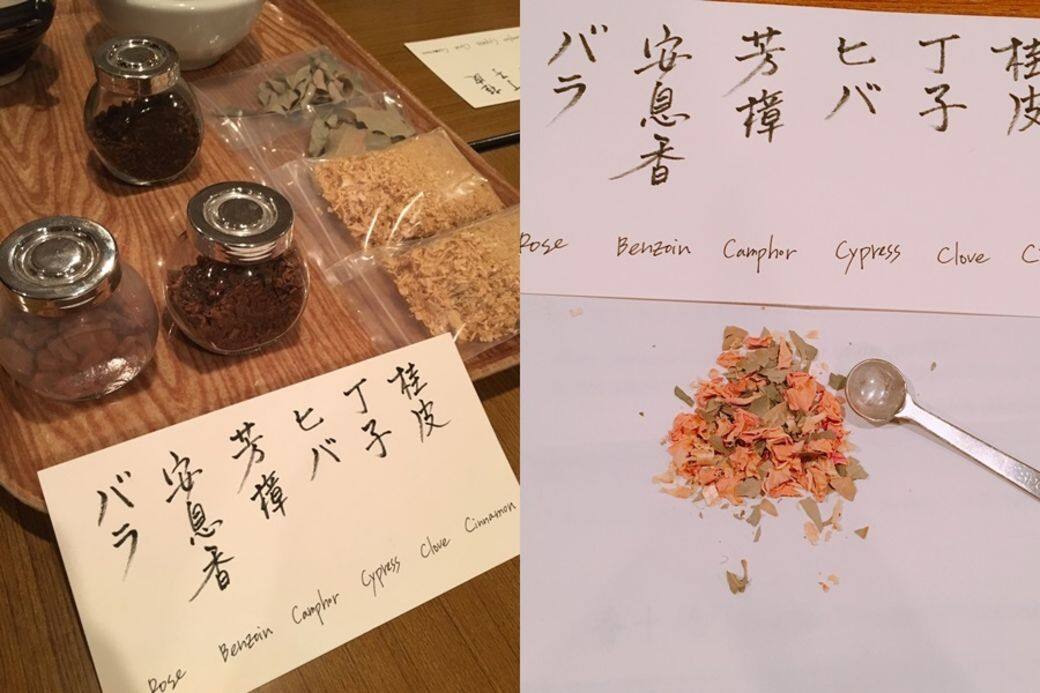 桂皮
丁子
ヒバ
芳樟
安息香
バラ
Rose Benzoin Camphor Cypress Clove Cinnamon
桂皮
丁子
ヒバ
芳樟
安息香
バラ
Rose Benzoin Camphor Cypress Clove